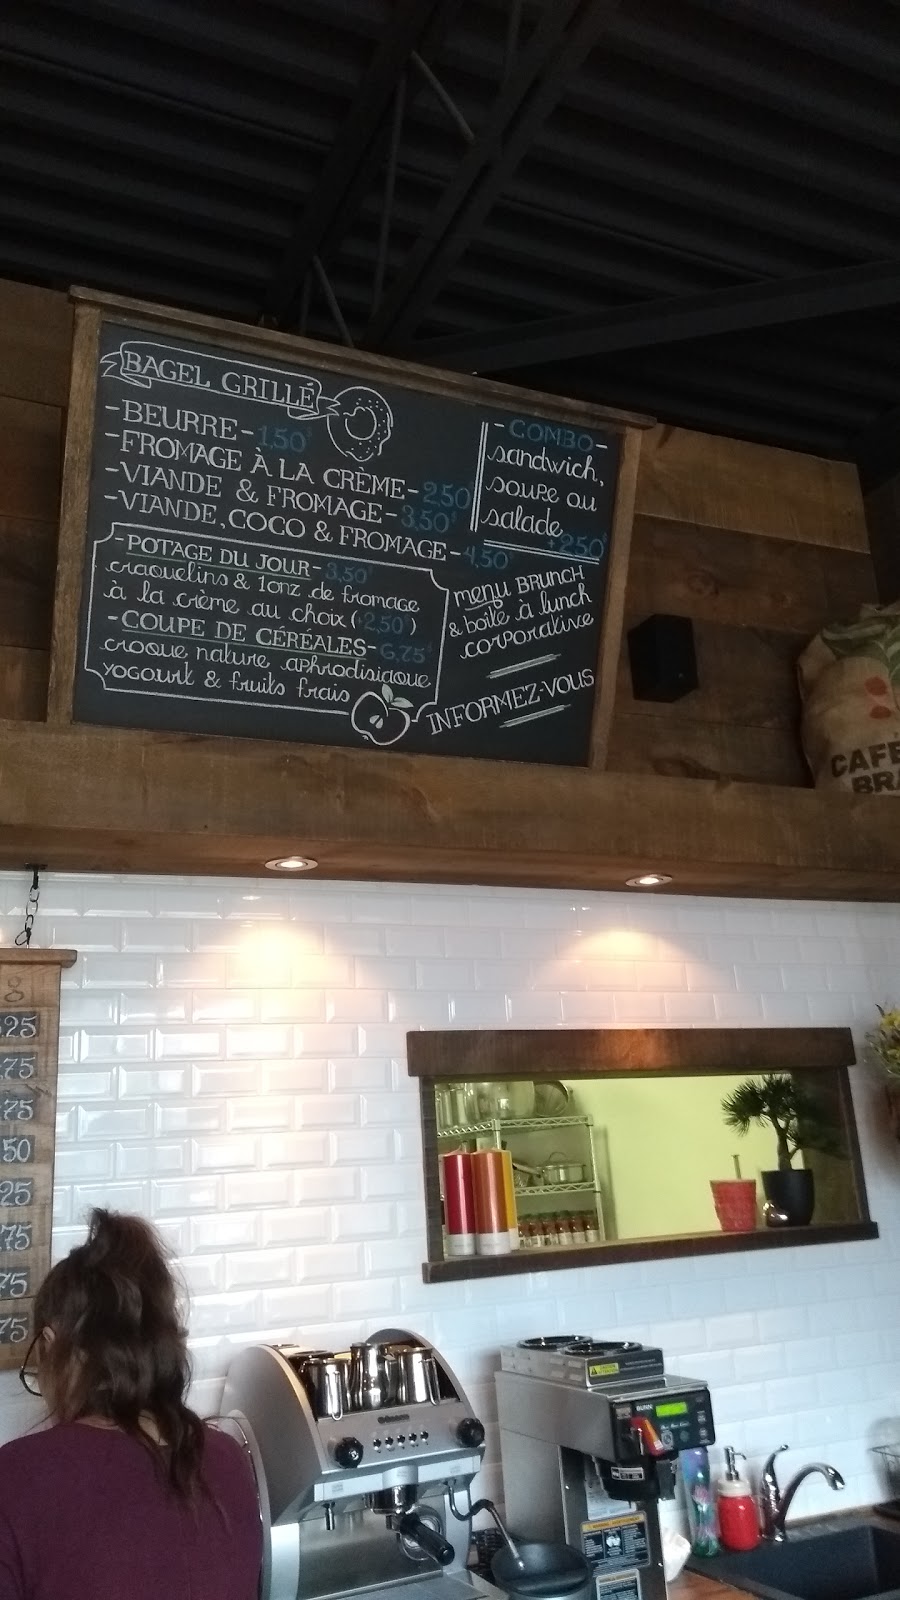 BAGEL GRILLÉ
-BEURRE-1,50$
-FROMAGE À LA CRÈME-2,50
-VIANDE & FROMAGE-3,50$
-VIANDE, COCO & FROMAGE-4,50$
-COMBO-
sandwich,
soupe ou
salade
+2,50$
-POTAGE DU JOUR-3,50$
craquelins & 1onz de fromage
à la crème au choix (+2,50$)
-COUPE DE CÉRÉALES-6,75$
croque nature aphrodisiaque
yogourt & fruits frais
menu BRUNCH
& boîte à lunch
corporative
INFORMEZ-VOUS
CAFÉ
BRA
8
.25
.75
.75
.50
.25
.75
.75
.75
BUNN